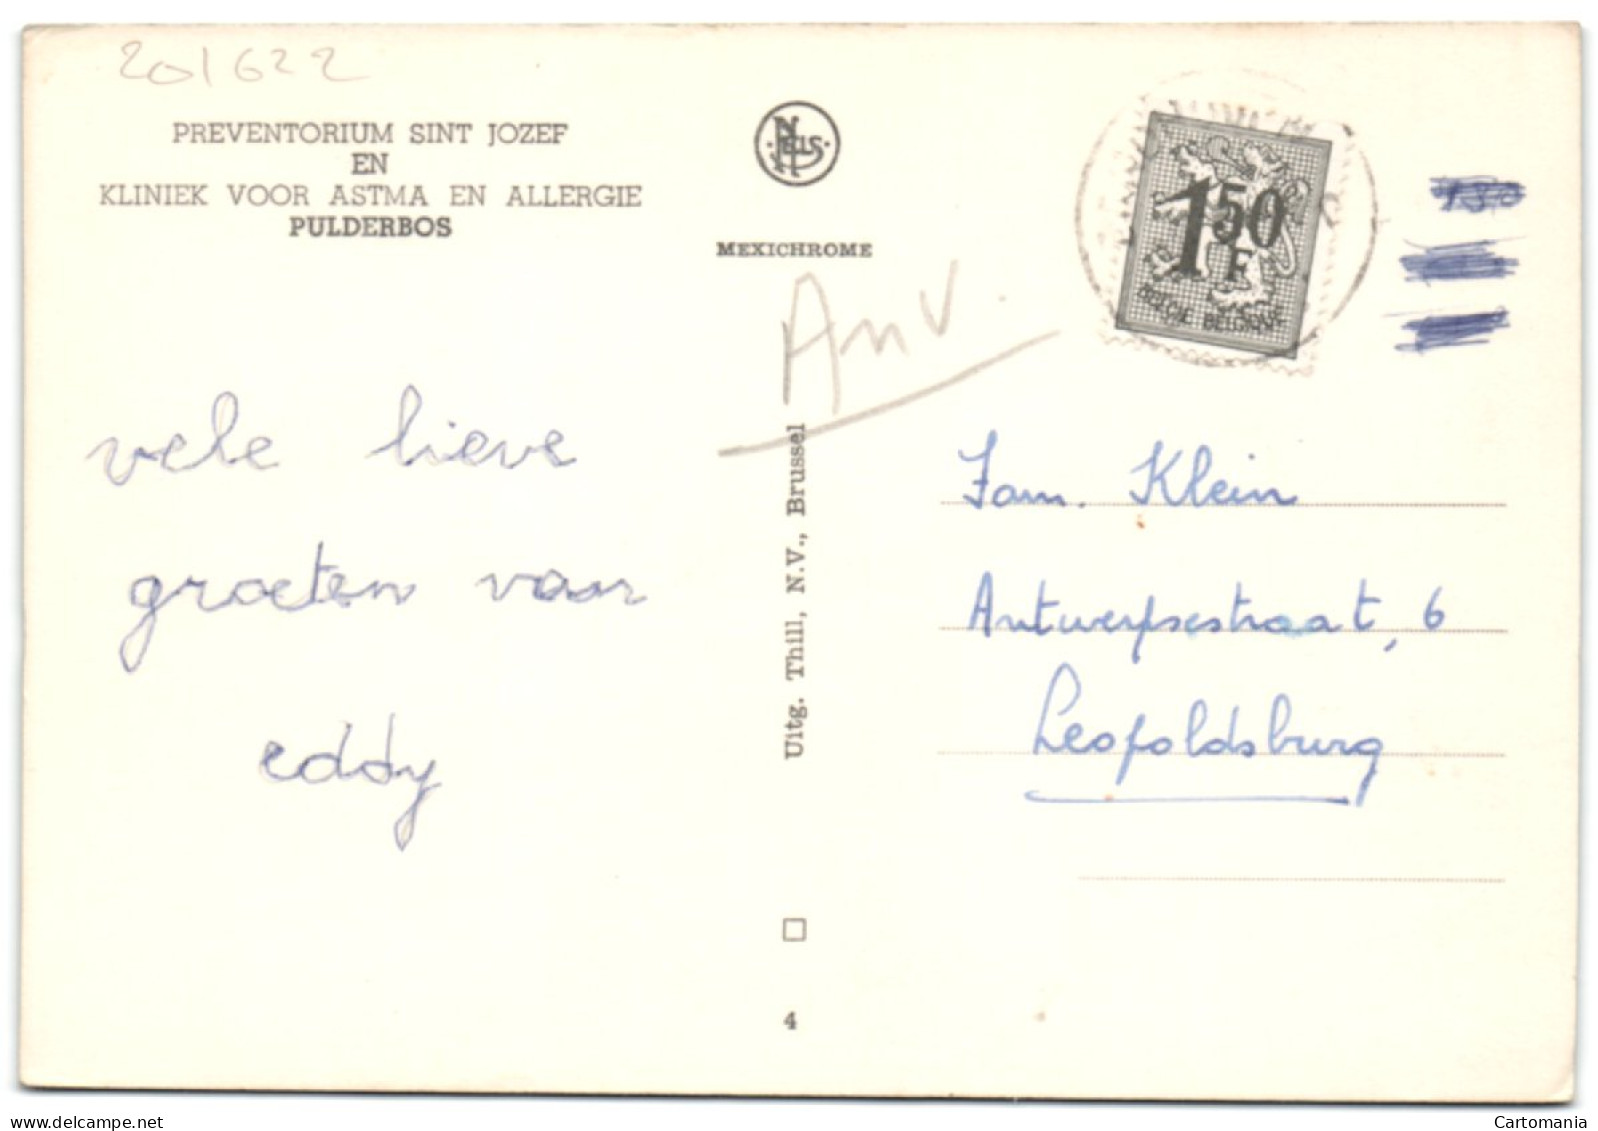 201622
PREVENTORIUM SINT JOZEF
EN
KLINIEK VOOR ASTMA EN ALLERGIE
PULDERBOS
vele lieve
groeten van
eddy
NELS
MEXICHROME
Anv.
Uitg. Thill, N.V., Brussel
4
1 50
F
BELGIE BELGIQUE
150
Fam. Klein
Antwerpsestraat, 6
Leopoldsburg
Cartomania